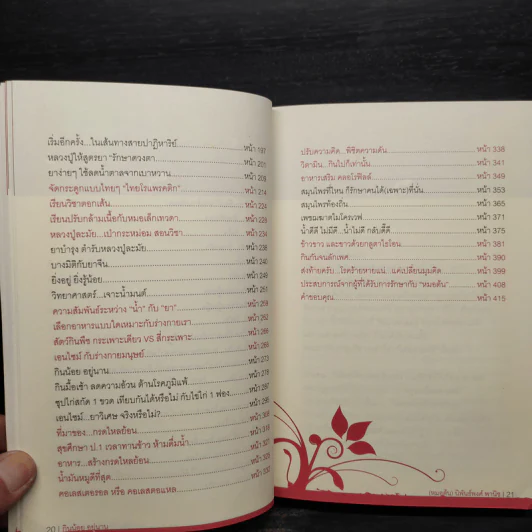 เริ่มอีกครั้ง...ในเส้นทางสายปาฏิหาริย์ หน้า 197
หลวงปู่ให้สูตรยา "รักษาดวงตา หน้า 201
ยาง่ายๆ ใช้ลดน้ำตาลจากเบาหวาน หน้า 209
จัดกระดูกแบบไทยๆ "ไทยโรแพรคติก" หน้า 214
เรียนวิชาตอกเส้น หน้า 224
เรียนปรับกล้ามเนื้อกับหมอเล็กเทวดา หน้า 228
หลวงปู่ละมัย...เป่ากระหม่อม สอนวิชา หน้า 234
ยาบำรุง ตำรับหลวงปู่ละมัย หน้า 238
บางมิติกับยาจีน หน้า 240
ยิ่งอยู่ ยิ่งรู้น้อย หน้า 249
วิทยาศาสตร์...เจาะน้ำมนต์ หน้า 251
ความสัมพันธ์ระหว่าง "น้ำ" กับ "ยา" หน้า 259
เลือกอาหารแบบใดเหมาะกับร่างกายเรา หน้า 262
สัตว์กินพืช กระเพาะเดียว VS สี่กระเพาะ หน้า 266
เอนไซม์ กับร่างกายมนุษย์ หน้า 269
กินน้อย อยู่นาน หน้า 273
กินมื้อเช้า ลดความอ้วน ต้านโรคภูมิแพ้ หน้า 279
ซุปไก่สกัด 1 ขวด เทียบกันได้หรือไม่ กับไข่ไก่ 1 ฟอง หน้า 287
เอนไซม์...ยาวิเศษ จริงหรือไม่? หน้า
ที่มาของ...กรดไหลย้อน หน้า
สุขศึกษา ป.1 เวลาทานข้าว ห้ามดื่มน้ำ หน้า
อาหาร...สร้างกรดไหลย้อน หน้า
น้ำมันหมูดีที่สุด หน้า
คอเลสเตอรอล หรือ คอเลสตอแหล หน้า
20 | กินน้อย อยู่นาน
ปรับความคิด...พิชิตความดัน หน้า 338
วิตามิน...กินไปก็เท่านั้น หน้า 341
อาหารเสริม คลอโรฟิลล์ หน้า 349
สมุนไพรที่ไหน ก็รักษาคนได้(เฉพาะ)ที่นั่น หน้า 353
สมุนไพรท้องถิ่น หน้า 365
เพชฌฆาตไมโครเวฟ หน้า 371
น้ำดีดี ไม่มีดี...น้ำไม่ดี กลับดี๊ดี หน้า 375
ข้าวขาว และขาวด้วยกลูตาไธโอน หน้า 381
กินกับจนดักเพศ หน้า 390
ส่งท้ายครับ...โรคร้ายหายแน่ แค่เปลี่ยนมุมคิด หน้า 399
ประสบการณ์จากผู้ที่ได้รับการรักษากับ "หมอดิน" หน้า 408
คำขอบคุณ หน้า 415
(หมอดิน) นิพันธ์พงศ์ พานิช | 21